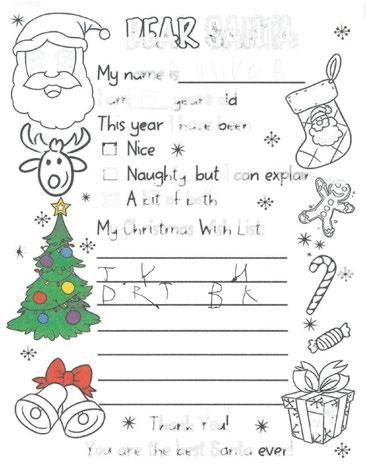 DEAR SANTA
My name is OLIVER
I am years old
This year I have been
Nice
Naughty but I can explain
A bit of both
My Christmas Wish List:
DIRT BIK
Thank You!
You are the best Santa ever!